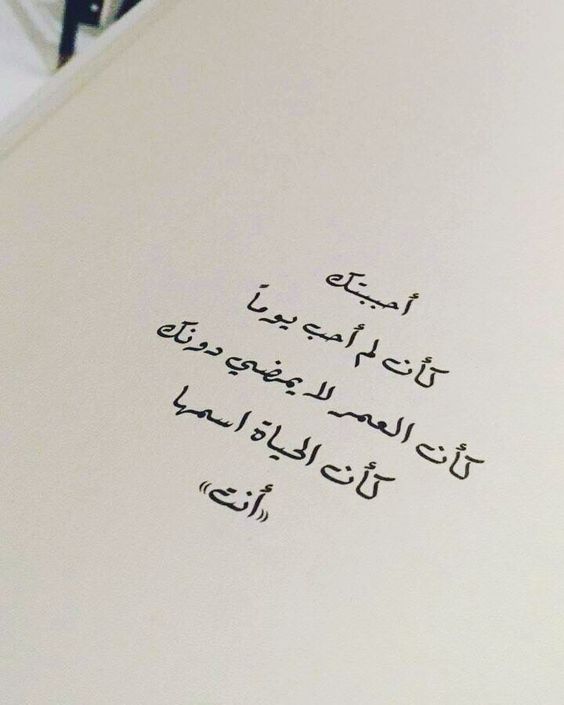 أحببتك
كأن لم أحب يوماً
كأن العمر لا يمضي دونك
كأن الحياة اسمها
«أنت»